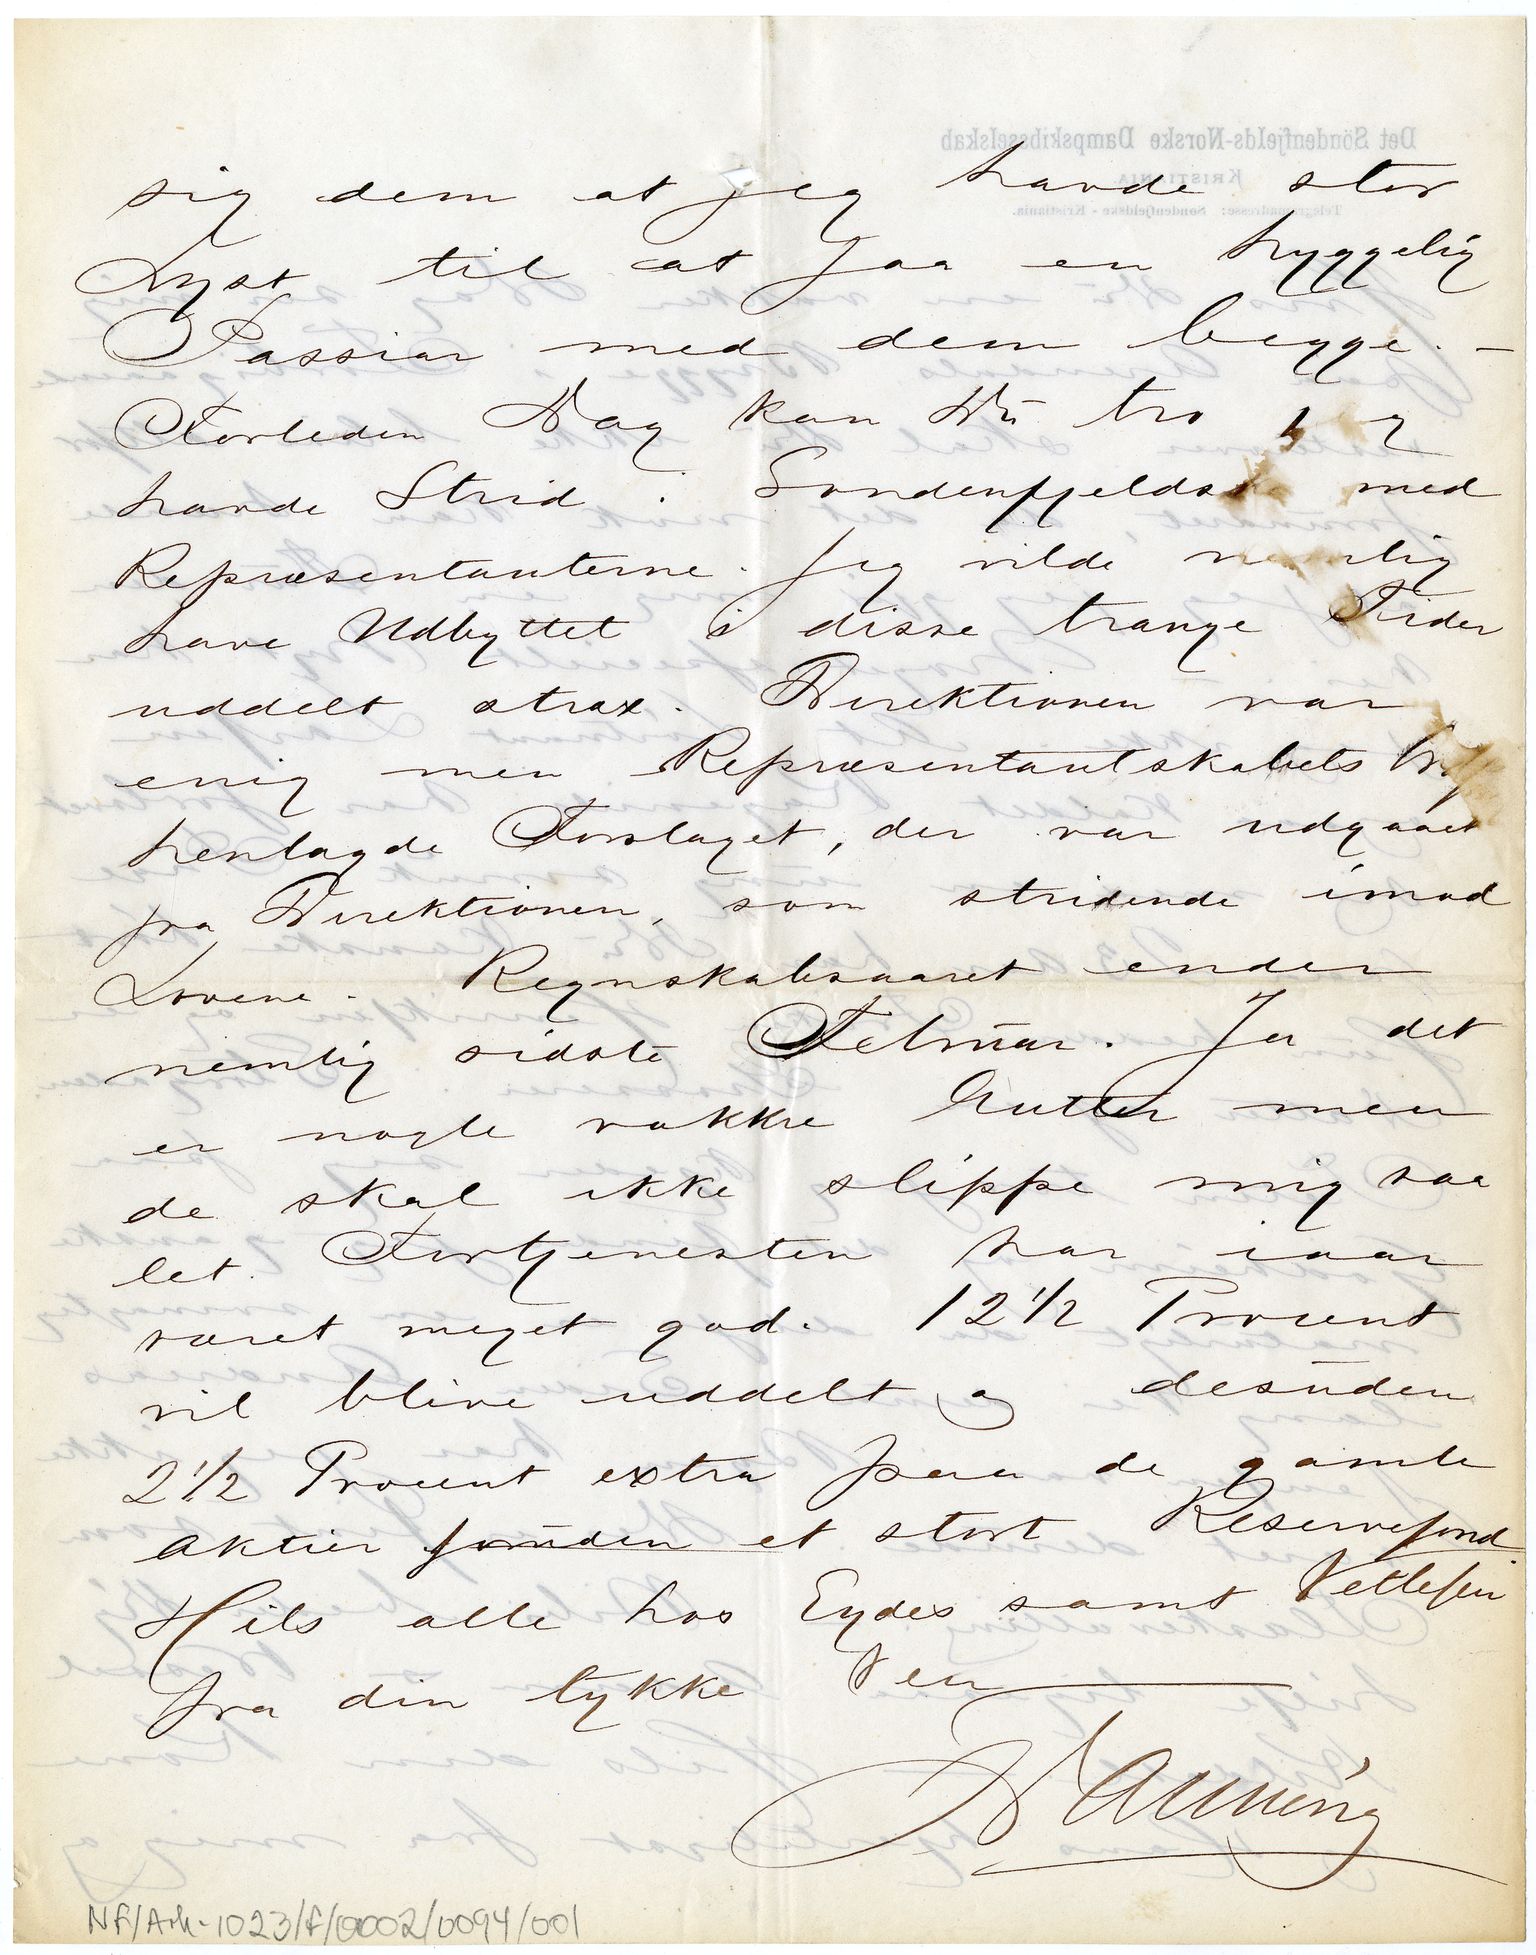 sig dem at jeg havde stor
Lyst til at faa en hyggelig
Passiar med dem begge. —
Forleden Dag kan Du tro jeg
havde Strid i Søndenfjeldske med
Repræsentanterne. Jeg vilde nemlig
have Udbyttet i disse trange Tider
uddelt strax. Direktionen var
enig men Repræsentantskabets
henlagde Forslaget, der var udgaaet
fra Direktionen, som stridende imod
Lovene. Regnskabsaaret ender
nemlig sidste Februar. Ja det
er nogle vakkre Gutter men
de skal ikke slippe mig saa
let. Fortjenesten har iaar
været meget god. 12 1/2 Procent
vil blive uddelt og desuden
2 1/2 Procent extra paa de gamle
Aktier foruden et stort Reservefond.
Hils alle hos Eydes samt Vetlesen
fra din tykke Ven
Det Söndenfjelds-Norske Dampskibsselskab
KRISTIANIA.
Telegramadresse: Søndenfjeldske - Kristiania.
NF/Ark-1023/F/0002/0094/001